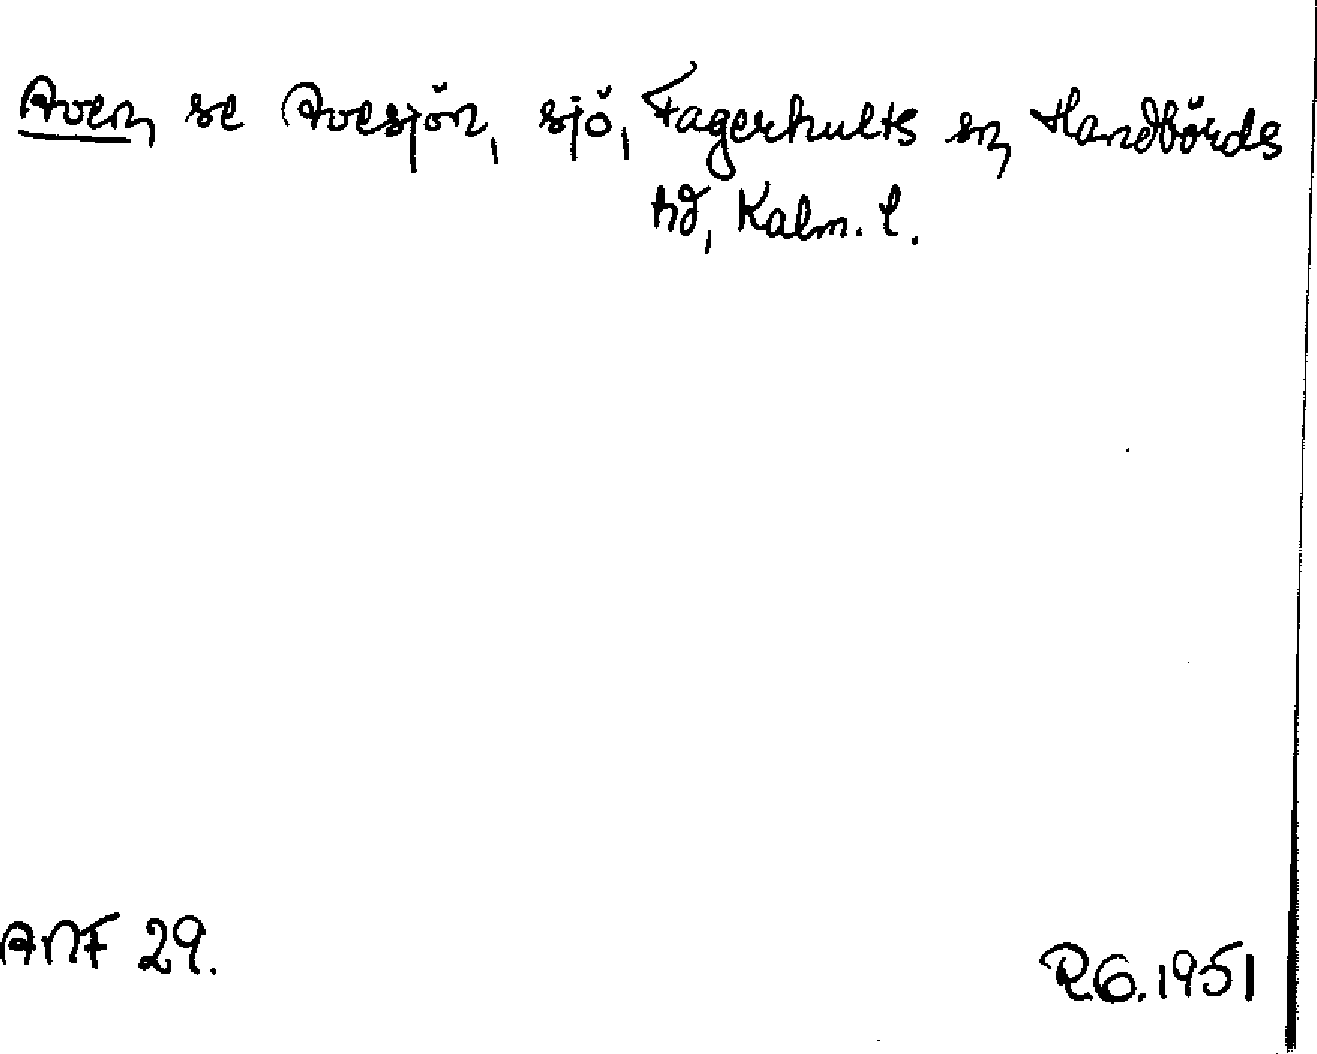 Aven, se Avesjön, sjö, Fagerhults sn, Handbörds
hd, Kalm. l.
ANF 29.
R.G. 1951